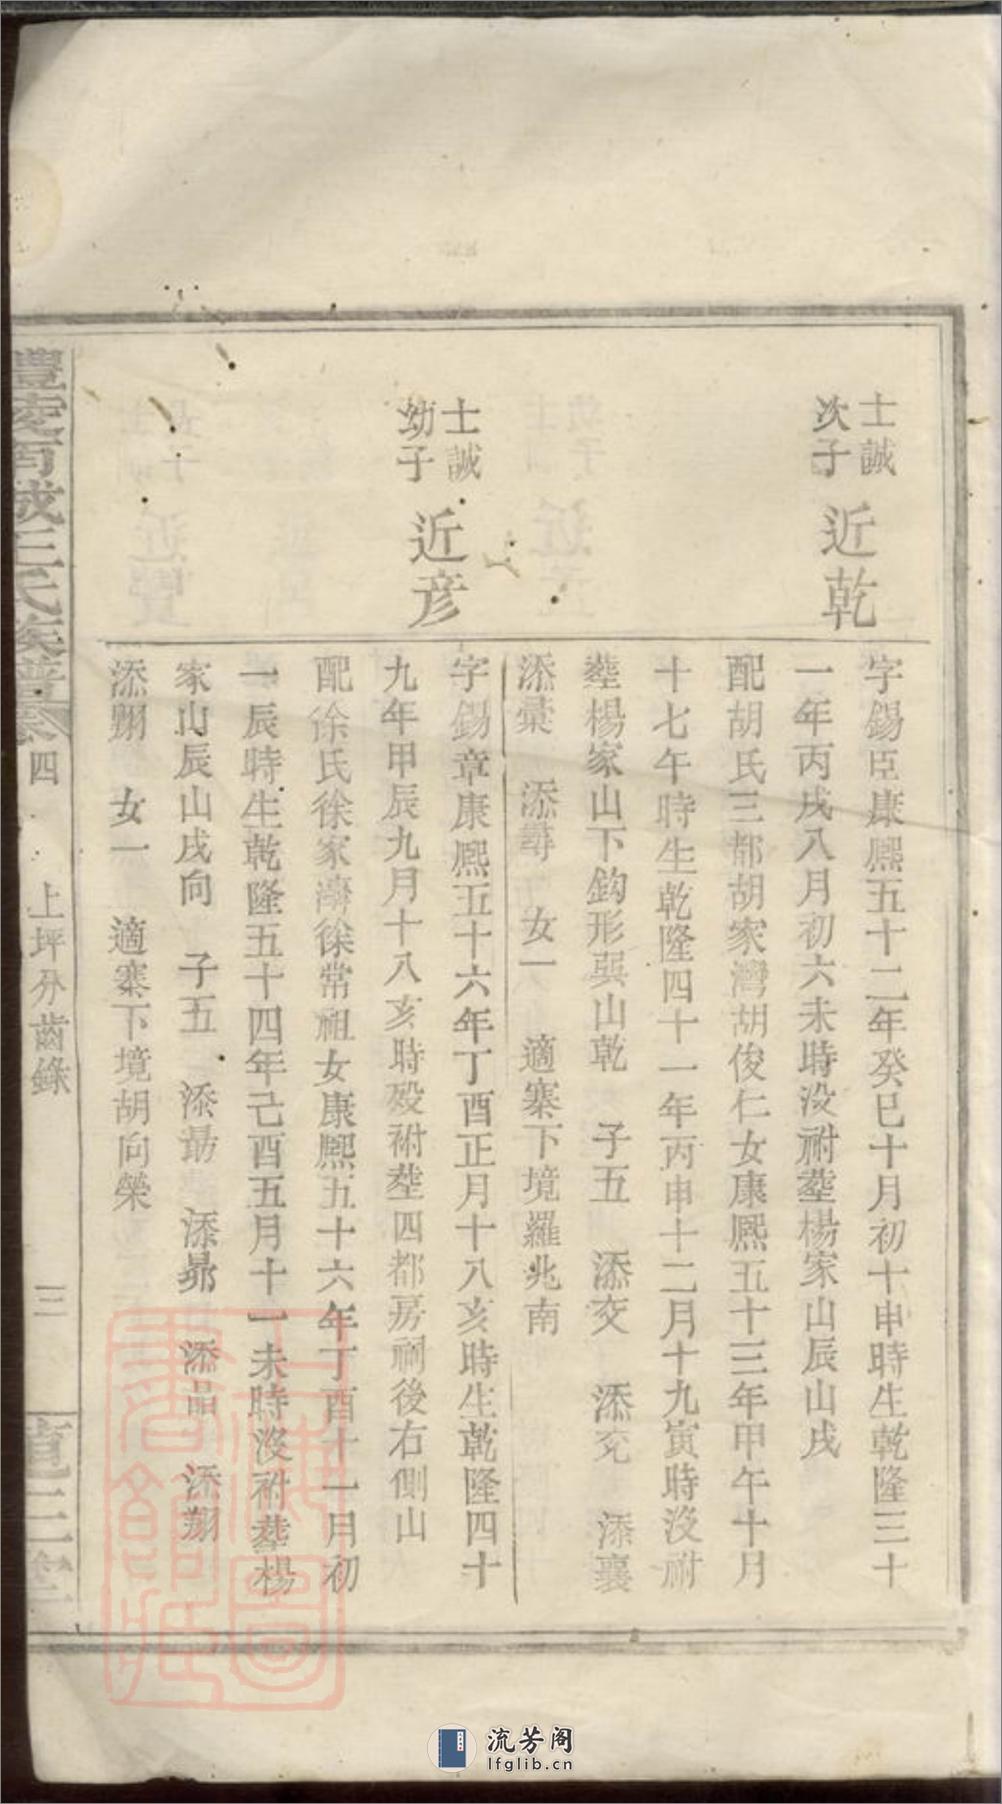 士誠
次子
近乾
字錫臣康熈五十二年癸巳十月初十申時生乾隆三十
一年丙戌八月初六未時没祔塟楊家山辰山戌
配胡氏三都胡家灣胡俊仁女康熈五十三年甲午十月
十七午時生乾隆四十一年丙申十二月十九寅時没祔
塟楊家山下鈎形巽山乾 子五 添交 添兖 添襄
添彙 添尋 女一 適寨下境羅兆南
士誠
幼子
近彦
字錫章康熈五十六年丁酉正月十八亥時生乾隆四十
九年甲辰九月十八亥時殁祔塟四都房祠後右側山
配徐氏徐家濟徐常祖女康熈五十六年丁酉十一月初
一辰時生乾隆五十四年己酉五月十一未時没祔塟楊
家山辰山戌向 子五 添勗 添昴 添品 添翔
添翙 女一 適寨下境胡向榮
醴陵南城王氏族譜卷四
上坪分齒錄
三
三
上海圖書館藏
流芳阁
lfglib.cn